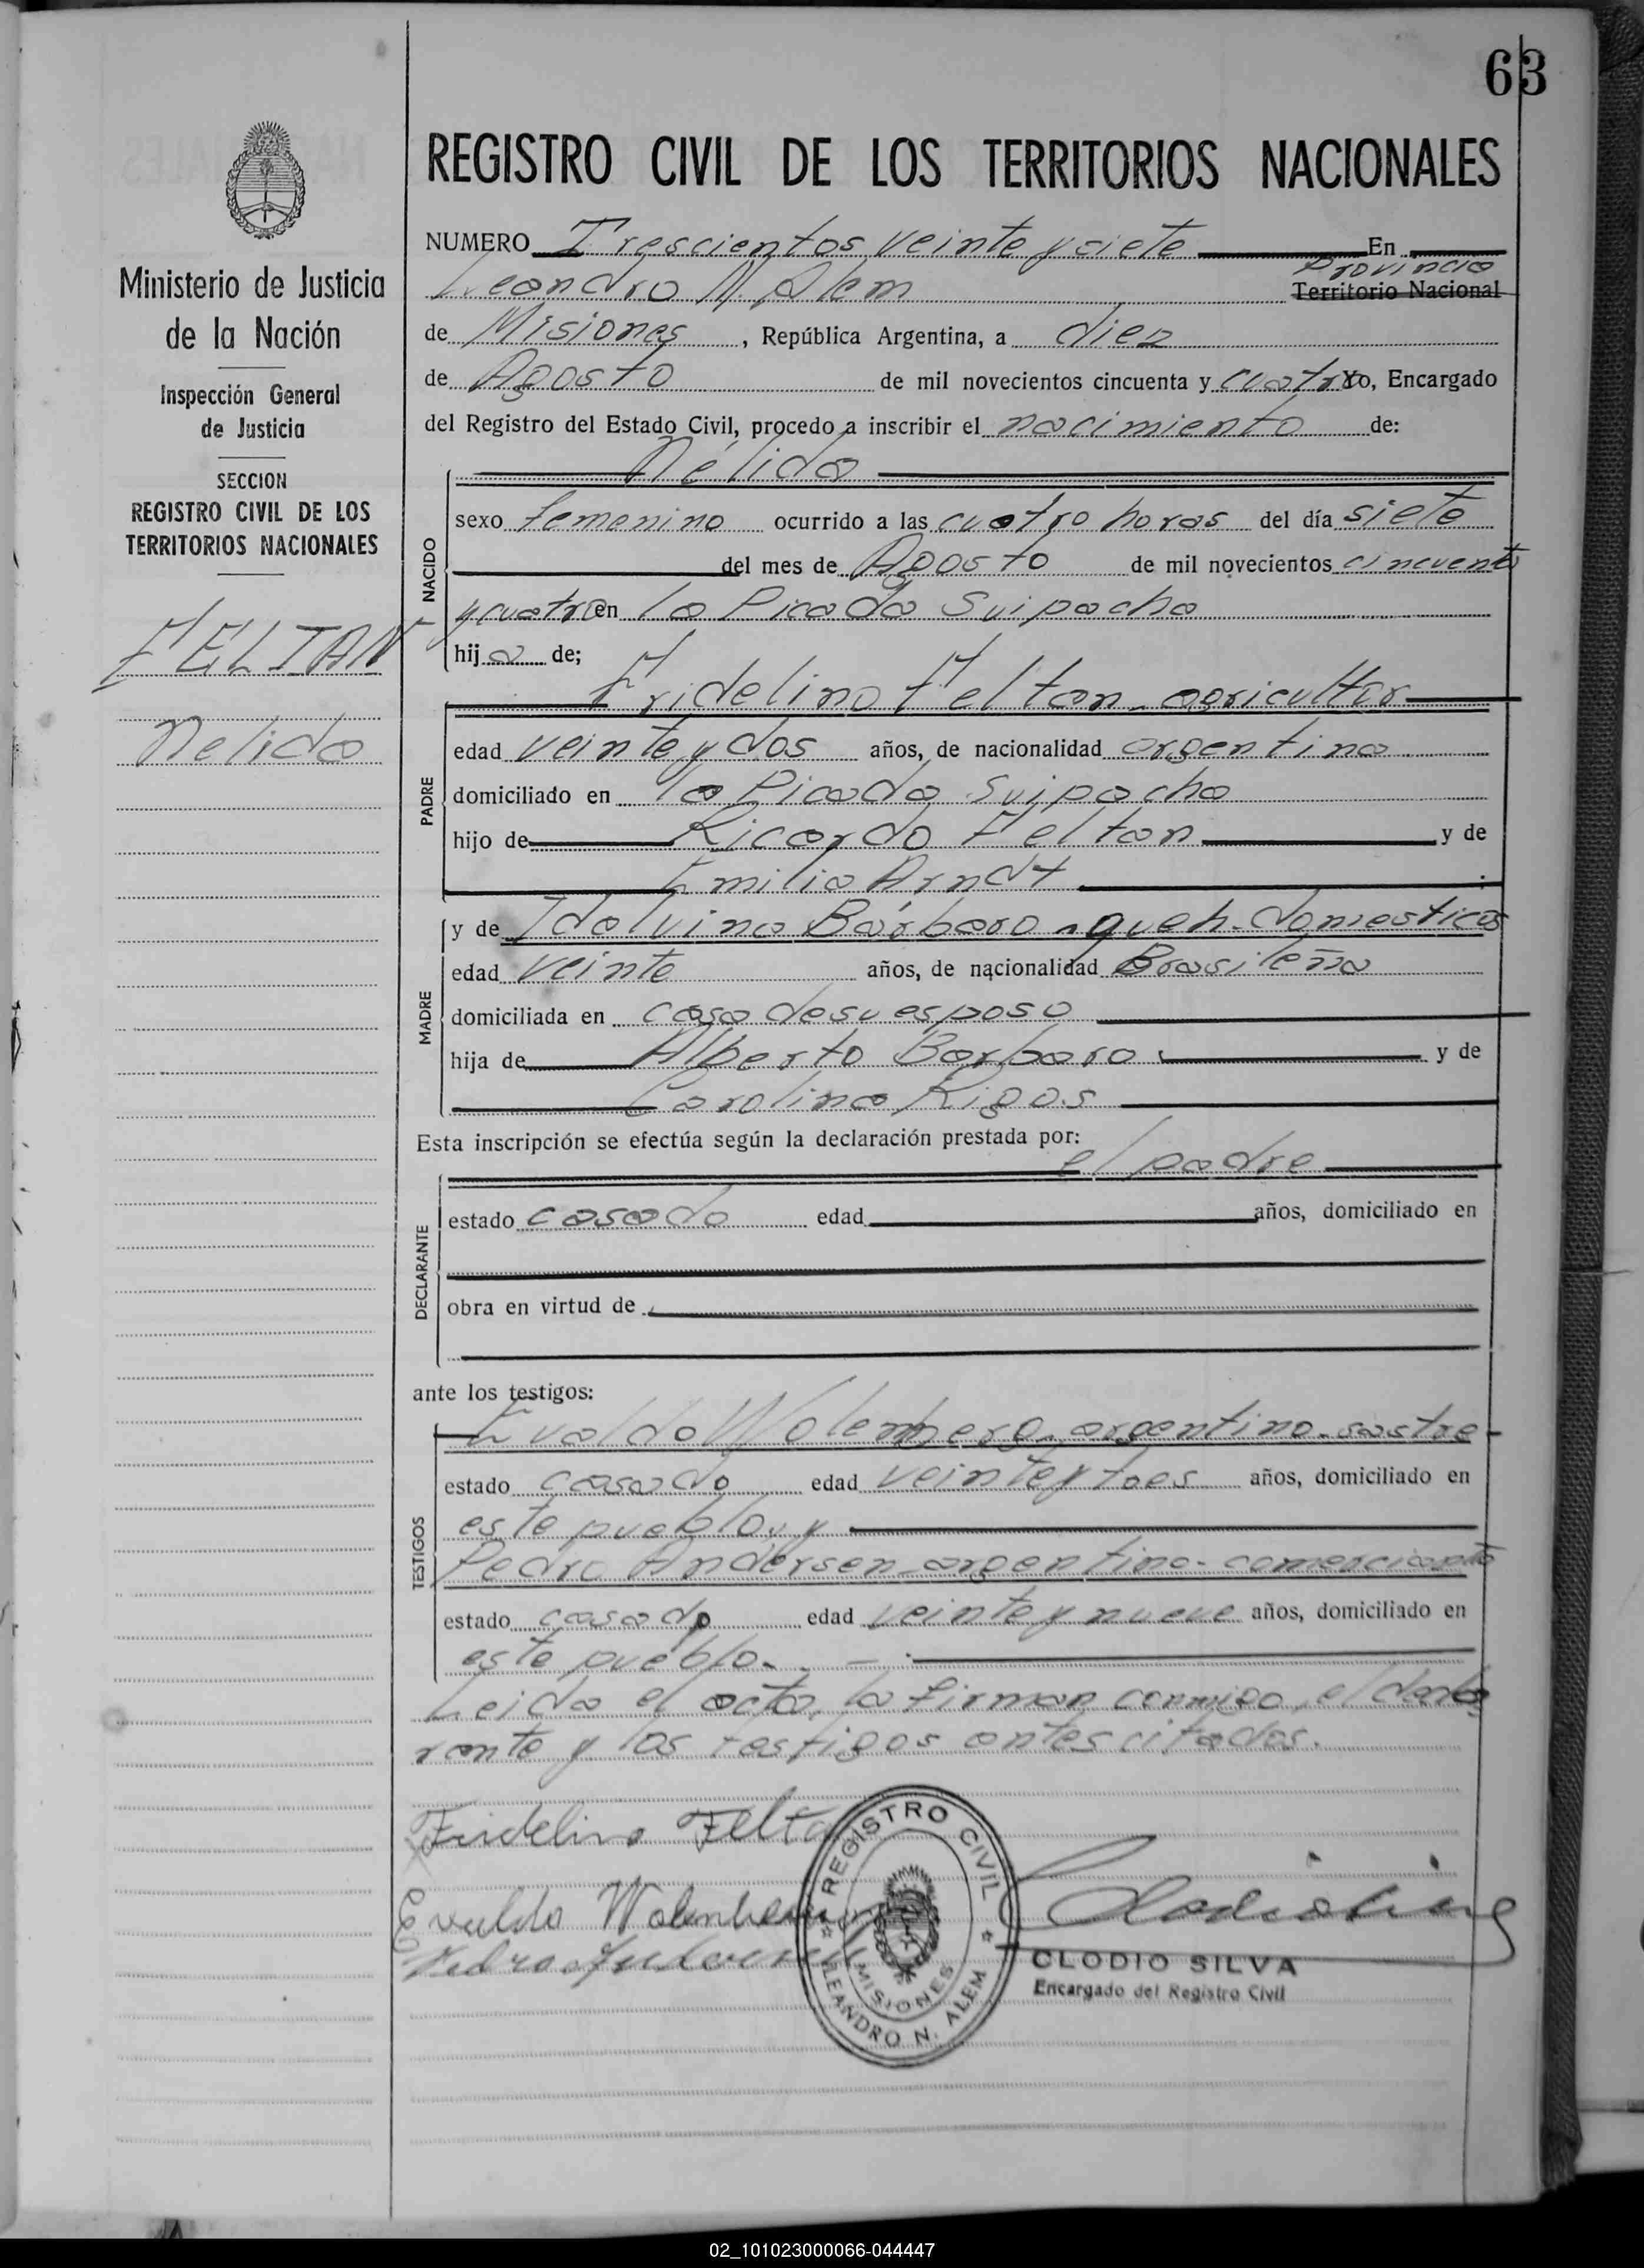 63
REGISTRO CIVIL DE LOS TERRITORIOS NACIONALES
Ministerio de Justicia
de la Nación
Inspección General
de Justicia
SECCION
REGISTRO CIVIL DE LOS
TERRITORIOS NACIONALES
FELTAN
Nelida
NUMERO Trescientos veinte y siete En
Leandro N. Alem Provincia Territorio Nacional
de Misiones, República Argentina, a diez
de Agosto de mil novecientos cincuenta y cuatro Yo, Encargado
del Registro del Estado Civil, procedo a inscribir el nacimiento de:
Nélida
NACIDO
sexo femenino ocurrido a las cuatro horas del día siete
del mes de Agosto de mil novecientos cincuenta
y cuatro en la Picada Suipacha
hija de;
Fridelino Feltan - agricultor
PADRE
edad veinte y dos años, de nacionalidad argentina
domiciliado en la Picada Suipacha
hijo de Ricardo Feltan y de
Emilia Arndt
MADRE
y de Idalvina Bárbaro - queh. domesticos
edad veinte años, de nacionalidad Brasileña
domiciliada en casa de su esposo
hija de Alberto Barbaro y de
Carolina Rigos
Esta inscripción se efectúa según la declaración prestada por:
el padre
DECLARANTE
estado casado edad años, domiciliado en
obra en virtud de
ante los testigos:
TESTIGOS
Evaldo Wolemberg - argentino - sastre -
estado casado edad veinte y tres años, domiciliado en
este pueblo, y
Pedro Andersen - argentino - comerciante
estado casado edad veinte y nueve años, domiciliado en
este pueblo.
Leida el acta, la firman conmigo, el decla
rante y los testigos antes citados.
Firdelino Felta
Evaldo Wolenberg
Pedro Andersen
REGISTRO CIVIL
MISIONES
LEANDRO N. ALEM
CLODIO SILVA
Encargado del Registro Civil
02_101023000066-044447